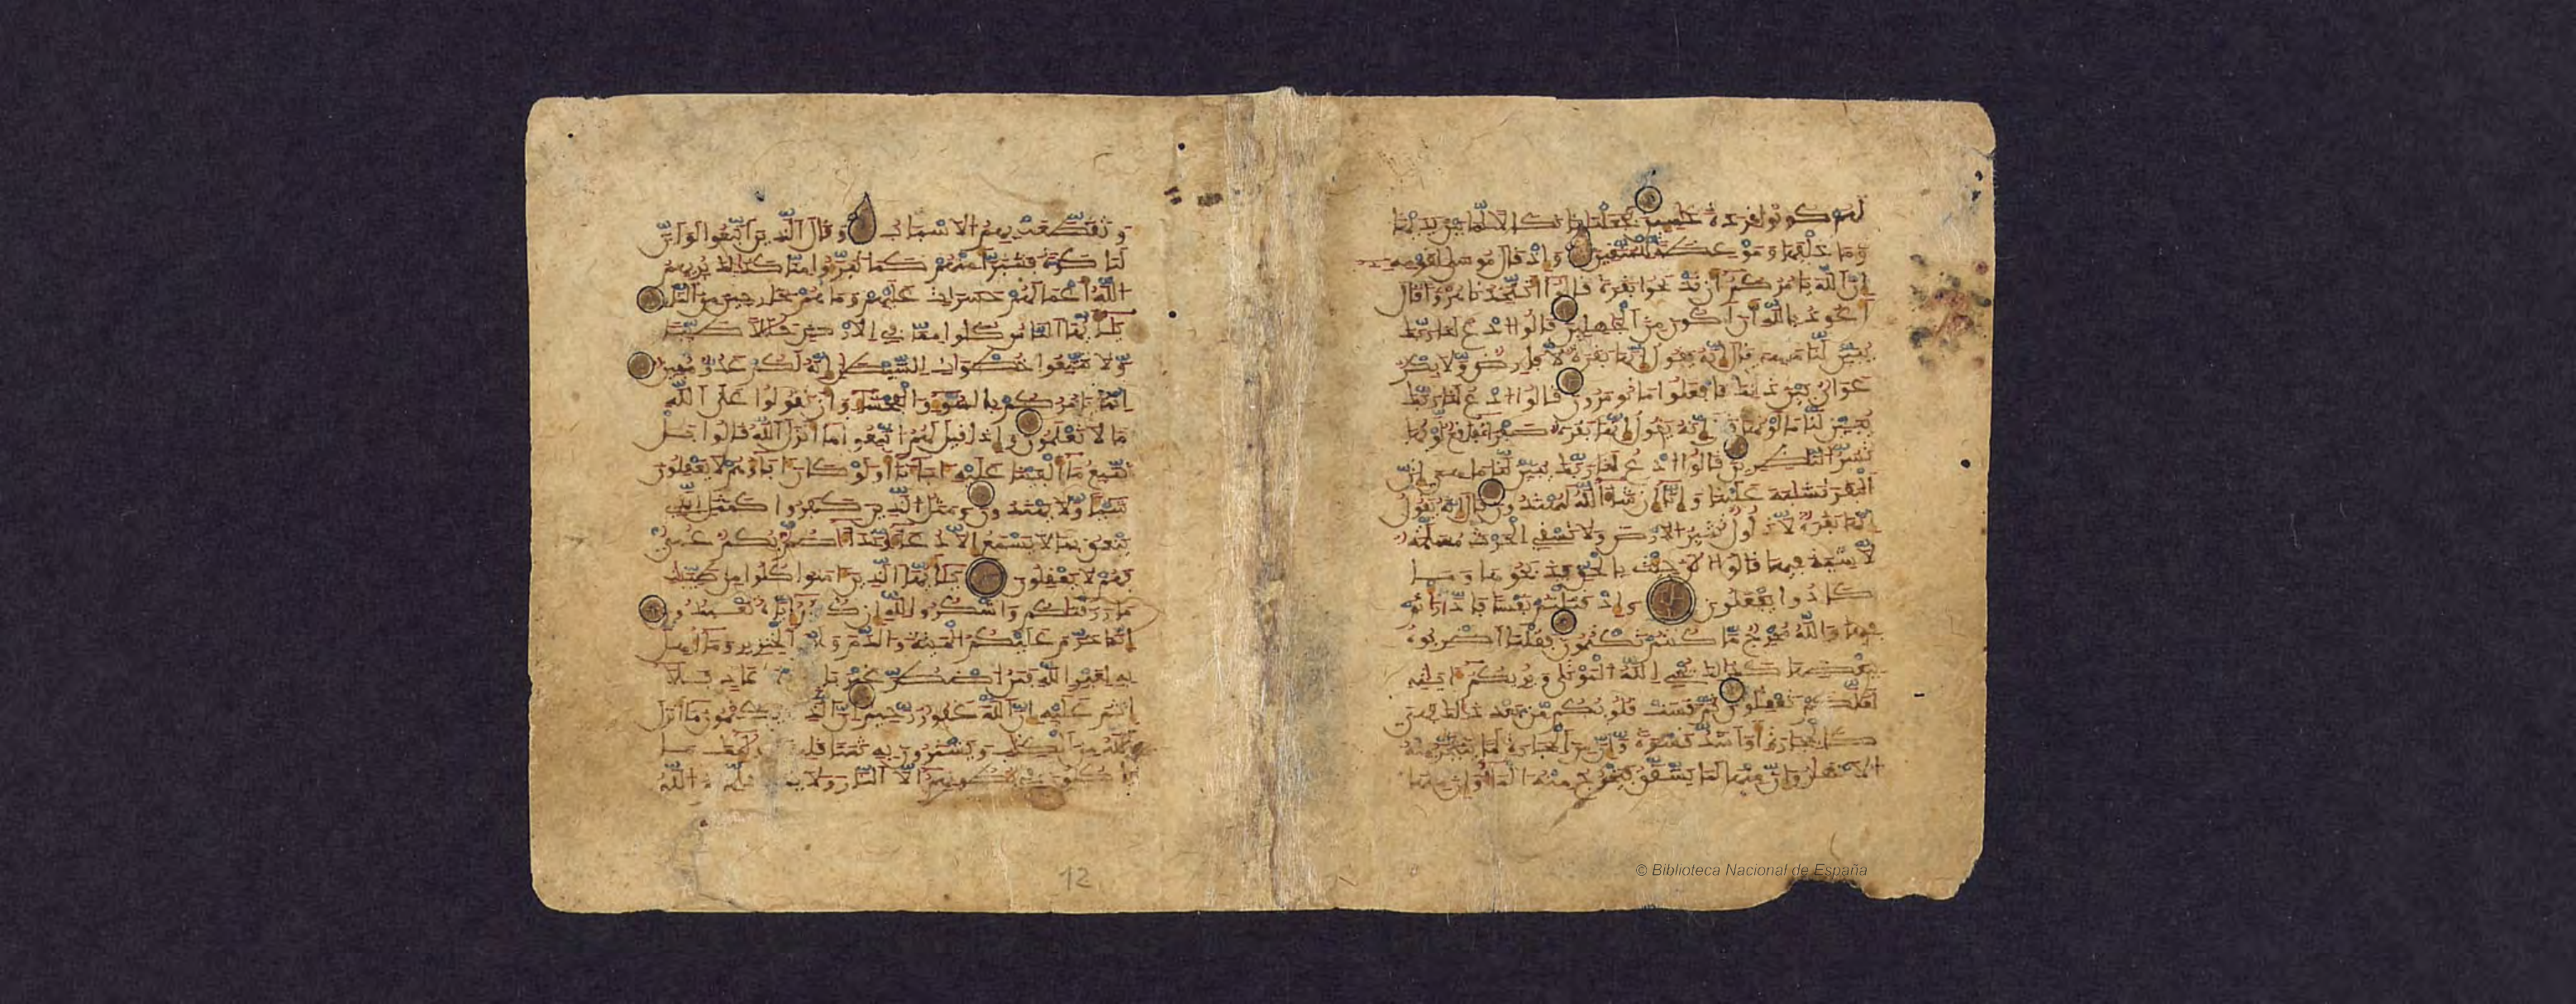 لهم كونوا قردة خسين فجعلنها نكالا لما بين يديها
وما خلفها وموعظة للمتقين وإذ قال موسى لقومه
إن الله يأمركم أن تذبحوا بقرة قالوا أتتخذنا هزؤا قال
أعوذ بالله أن أكون من الجهلين قالوا ادع لنا ربك
يبين لنا ما هي قال إنه يقول إنها بقرة لا فارض ولا بكر
عوان بين ذلك فافعلوا ما تومرون قالوا ادع لنا ربك
يبين لنا ما لونها قال إنه يقول إنها بقرة صفراء فاقع لونها
تسر النظرين قالوا ادع لنا ربك يبين لنا ما هي إن
البقر تشبه علينا وإنا إن شاء الله لمهتدون قال إنه يقول
إنها بقرة لا ذلول تثير الارض ولا تسقي الحرث مسلمة
لا شية فيها قالوا الن جئت بالحق فذبحوها وما
كادوا يفعلون وإذ قتلتم نفسا فادارأتم
فيها والله مخرج ما كنتم تكتمون فقلنا اضربوه
ببعضها كذلك يحي الله الموتى ويريكم ءايته
لعلكم تعقلون ثم قست قلوبكم من بعد ذلك فهي
كالحجارة أو أشد قسوة وإن من الحجارة لما يتفجر منه
الانهر وإن منها لما يشقق فيخرج منه الماء وإن منها
وتقطعت بهم الاسباب وقال الذين اتبعوا لو أن
لنا كرة فنتبرأ منهم كما تبرءوا منا كذلك يريهم
الله أعملهم حسرات عليهم وما هم بخرجين من النار
يأيها الناس كلوا مما في الارض حللا طيبا
ولا تتبعوا خطوات الشيطن إنه لكم عدو مبين
إنما يأمركم بالسوء والفحشاء وأن تقولوا على الله
ما لا تعلمون وإذا قيل لهم اتبعوا ما أنزل الله قالوا بل
نتبع ما ألفينا عليه ءاباءنا أولو كان ءاباؤهم لا يعقلون
شيئا ولا يهتدون ومثل الذين كفروا كمثل الذي
ينعق بما لا يسمع إلا دعاء ونداء صم بكم عمي
فهم لا يعقلون يأيها الذين ءامنوا كلوا من طيبت
ما رزقنكم واشكروا لله إن كنتم إياه تعبدون
إنما حرم عليكم الميتة والدم ولحم الخنزير وما أهل
به لغير الله فمن اضطر غير باغ ولا عاد فلا
إثم عليه إن الله غفور رحيم إن الذين يكتمون ما أنزل
الله من الكتب ويشترون به ثمنا قليلا أولئك ما
ياكلون في بطونهم إلا النار ولا يكلمهم الله
12
© Biblioteca Nacional de España